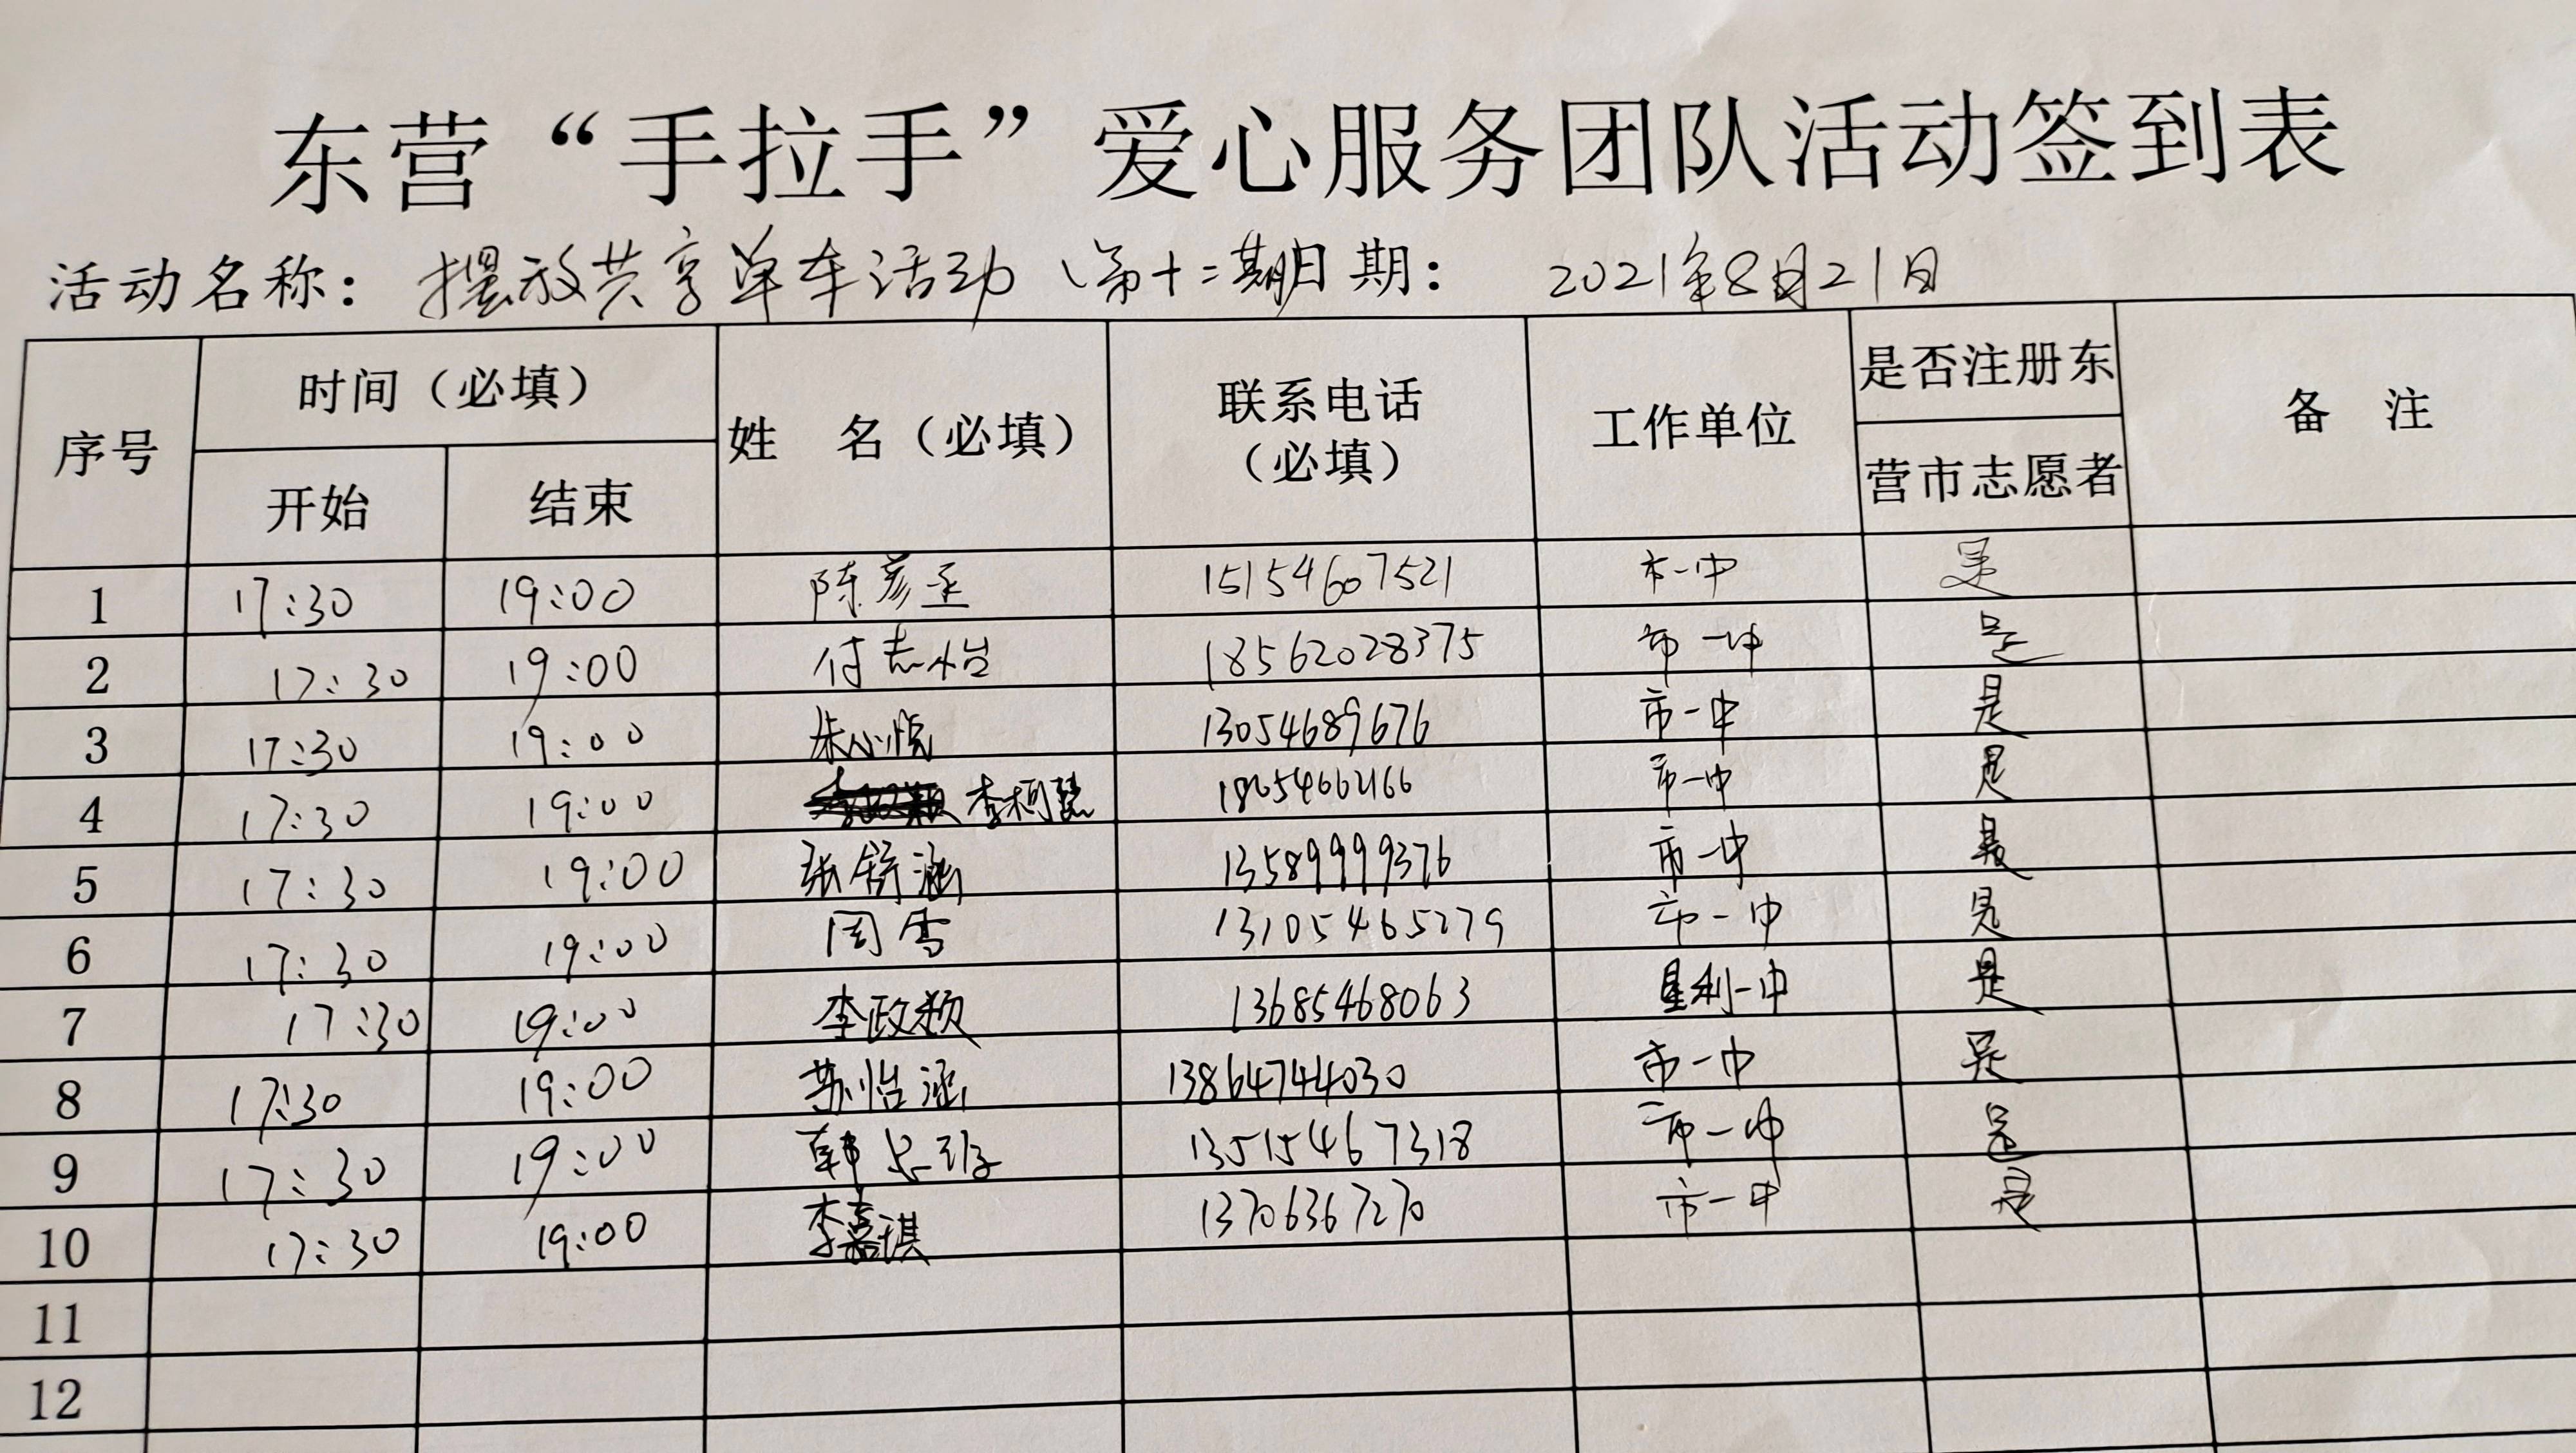 东营“手拉手”爱心服务团队活动签到表
活动名称：摆放共享单车活动（第十二期 日期： 2021年8月21日
序号 时间（必填） 姓 名（必填） 联系电话（必填） 工作单位 是否注册东营市志愿者 备 注
开始 结束
1 17:30 19:00 陈彦丞 15154607521 市一中 是
2 17:30 19:00 付志怡 18562028375 市一中 是
3 17:30 19:00 朱心悦 13054689676 市一中 是
4 17:30 19:00 李柯慧 市一中 是
5 17:30 19:00 张舒涵 13589999376 市一中 是
6 17:30 19:00 周雪 13105465279 市一中 是
7 17:30 19:00 李政颖 13685468063 垦利一中 是
8 17:30 19:00 苏怡涵 13864744030 市一中 是
9 17:30 19:00 韩 13515467318 市一中 是
10 17:30 19:00 李嘉琪 13706367270 市一中 是
11
12